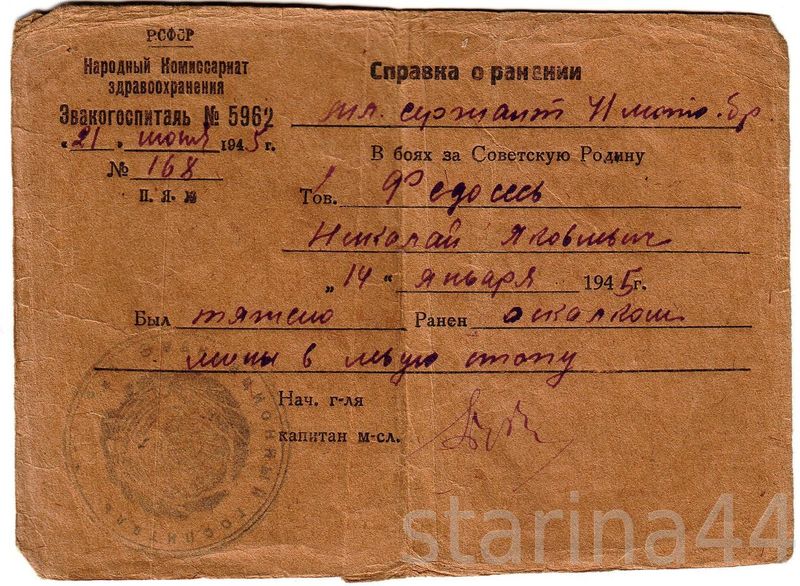 РСФСР
Народный Комиссариат
здравоохранения
Эвакогоспиталь № 5962
"21" июня 1945 г.
№ 168
П. Я. №
Справка о ранении
мл. сержант 11 мото. бр.
В боях за Советскую Родину
Тов. Федосеев
Николай Яковлевич
„14“ января 1945 г.
Был тяжело Ранен осколком
мины в левую стопу
Нач. г-ля
капитан м-сл.
ЭВАКУАЦИОННЫЙ ГОСПИТАЛЬ
starina44